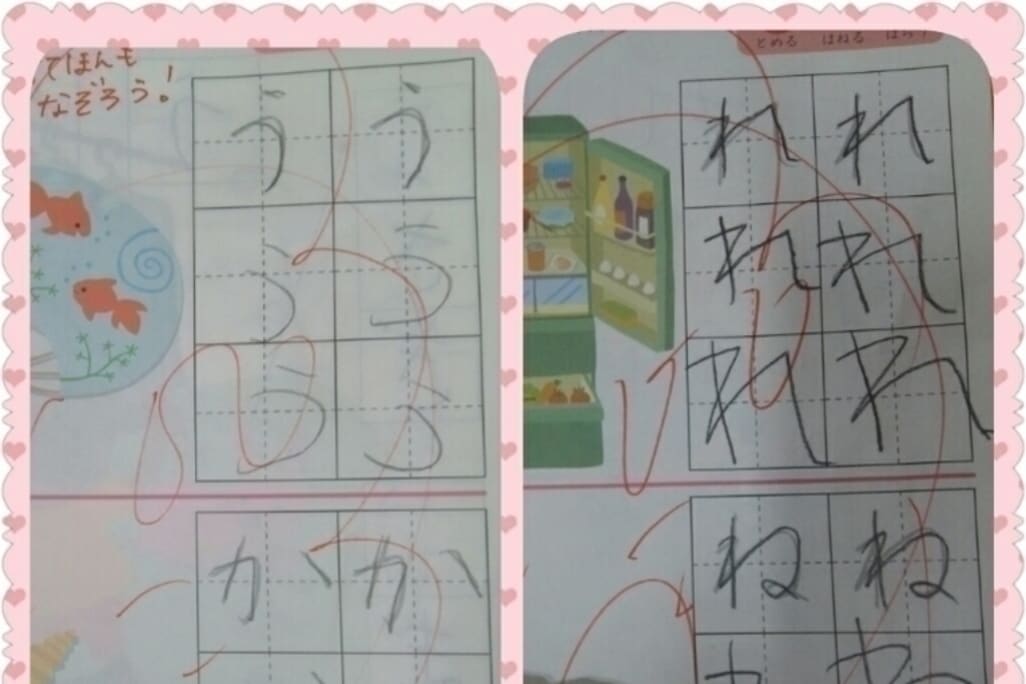 てほんも
なぞろう！
う う
う う
う う
か か
とめる はねる はらう
れ れ
れ れ
れ れ
ね ね